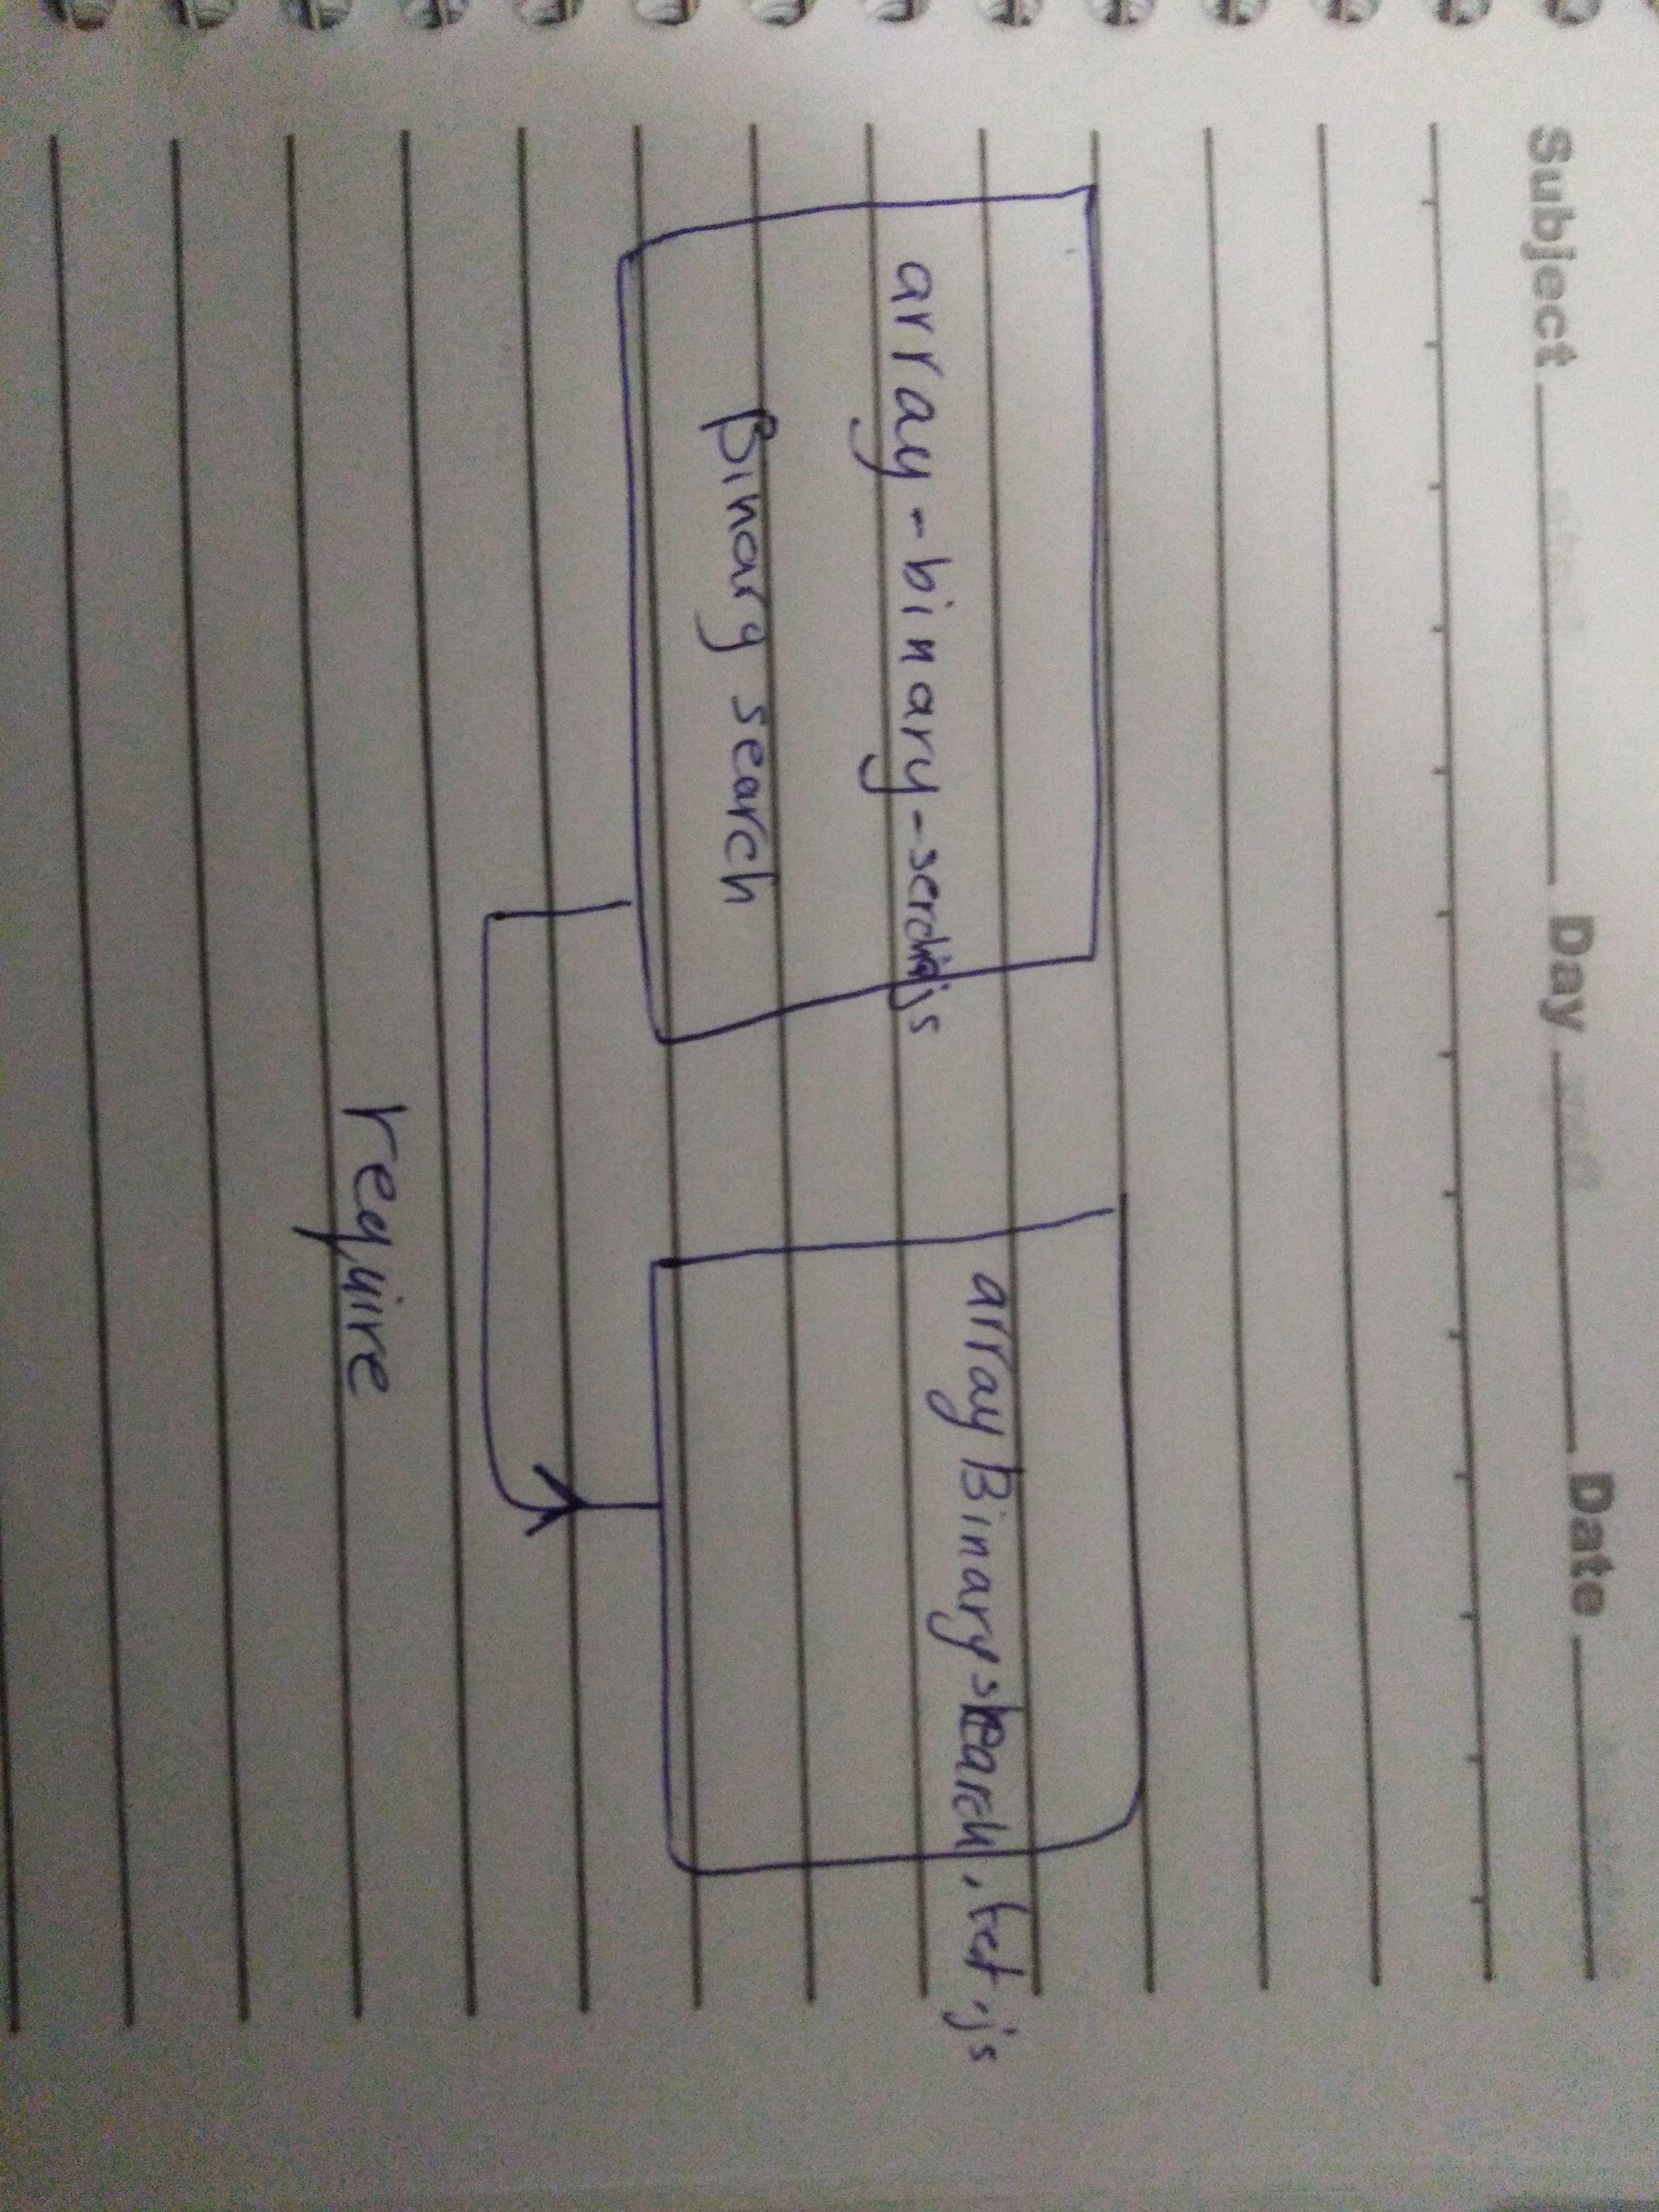 Subject Day Date
array-binary-serch.js
Binary search
arrayBinarysearch.test.js
require